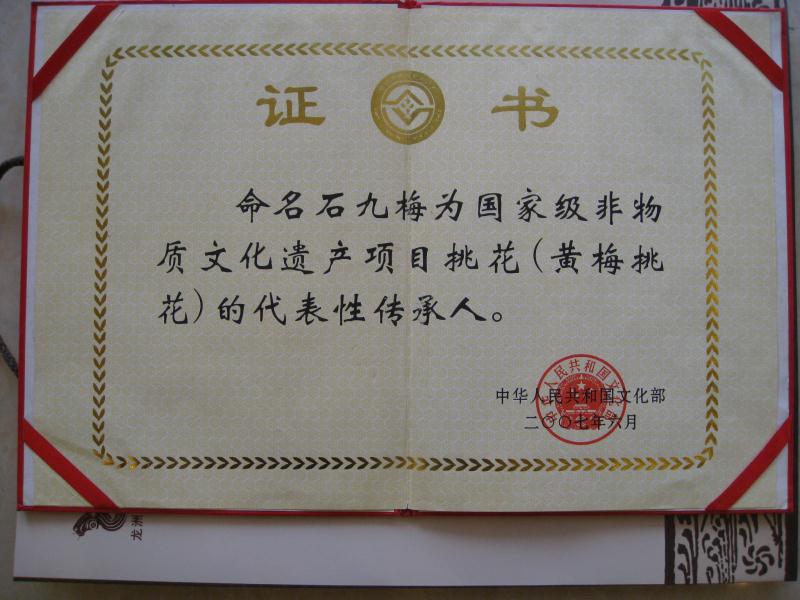 证书
命名石九梅为国家级非物
质文化遗产项目挑花(黄梅挑
花)的代表性传承人。
中华人民共和国文化部
中华人民共和国文化部
二〇〇七年六月
龙洲